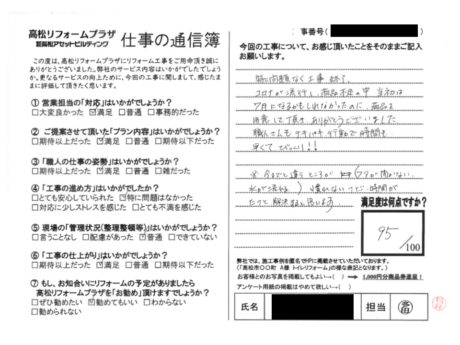 高松リフォームプラザ
㈱高松アセットビルディング
仕事の通信簿
この度は、高松リフォームプラザにリフォーム工事をご用命頂き誠に
ありがとうございました。弊社のサービス内容はいかがでしたでしょう
か。更なるサービスの向上のために、今回の工事に関しまして、感じたま
まに評価して頂きたく思います。
① 営業担当の「対応」はいかがでしょうか?
□大変良かった ☑満足 □普通 □事務的だった
② ご提案させて頂いた「プラン内容」はいかがでしょうか?
□期待以上だった ☑満足 □普通 □期待以下だった
③ 「職人の仕事の姿勢」はいかがでしょうか?
□期待以上だった ☑満足 □普通 □雑だった
④ 「工事の進め方」はいかがでしたか?
□とても安心していられた ☑特に問題はなかった
□対応に少しストレスを感じた □とても不満を感じた
⑤ 現場の「管理状況(整理整頓等)」はいかがでしょうか?
□言うことなし □配慮があった ☑普通 □できていない
⑥ 「工事の仕上がり」はいかがでしょうか?
□期待以上だった ☑満足 □普通 □期待以下だった
⑦ もし、お知合いにリフォームの予定がありましたら
高松リフォームプラザを「お勧め」頂けますでしょうか?
□ぜひ勧めたい ☑勧めてもいい □わからない
□勧められない
事番号(
今回の工事について、お感じ頂いたことをそのままご記入
お願いします。
特に問題なく工事 終了。
コロナが流行し、商品不足の中 当初は
7月になるかもしれなかったのに、商品を
用意して頂き、ありがとうございました。
職人さんも テキパキ 行動で 時間も
早くて
満足度は何点ですか?
95 /100
弊社では、施工事例を匿名でHPに掲載させていただいております。
(「高松市〇〇町 A様 トイレリフォーム」の様な表記となります。)
お客様とのお写真を掲載してもよい→( ) 1,000円分商品券進呈!
アンケート用紙の掲載はやめて欲しい→( )
氏名
担当